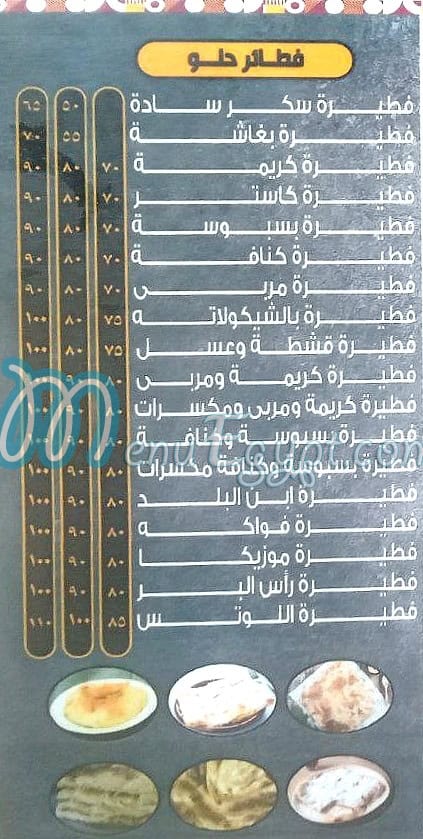 فطائر حلو
فطيرة سكر سادة ٥٠ ٦٥
فطيرة بغاشة ٥٥ ٧٠
فطيرة كريمة ٧٠ ٨٠ ٩٠
فطيرة كاستر ٧٠ ٨٠ ٩٠
فطيرة بسبوسة ٧٠ ٨٠ ٩٠
فطيرة كنافة ٧٠ ٨٠ ٩٠
فطيرة مربى ٧٠ ٨٠ ٩٠
فطيرة بالشيكولاته ٧٥ ٨٠ ١٠٠
فطيرة قشطة وعسل ٧٥ ٨٠ ١٠٠
فطيرة كريمة ومربى ٨٠ ٩٠
فطيرة كريمة ومربى ومكسرات ٨٠ ٩٠ ١٠٠
فطيرة بسبوسة وكنافة
فطيرة بسبوسة وكنافة مكسرات ٨٠ ٩٠ ١٠٠
فطيرة ابن البلد ٨٠ ٩٠ ١٠٠
فطيرة فواكه ٨٠ ٩٠ ١٠٠
فطيرة موزيكا ٨٠ ٩٠ ١٠٠
فطيرة رأس البر ٨٠ ٩٠ ١٠٠
فطيرة اللوتس ٨٥ ١٠٠ ١١٠
MenuEgypt.com